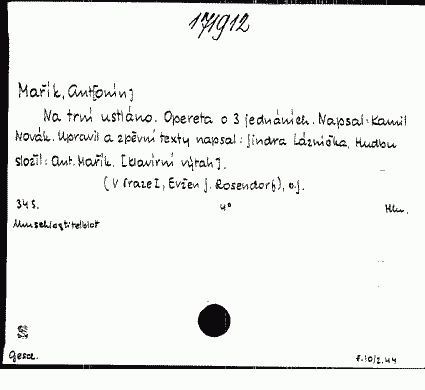 171912
Mařík, Ant[onín]
Na trní ustláno. Opereta o 3 jednáních. Napsal: Kamil
Novák. Upravil a zpěvní texty napsal: Jindra Láznička. Hudbu
složil: Ant. Mařík. [Klavírní výtah].
(V Praze I, Evžen J. Rosendorf), o.J.
34 S. 4° Hlw.
Umschlagtitelblatt
Gesch.